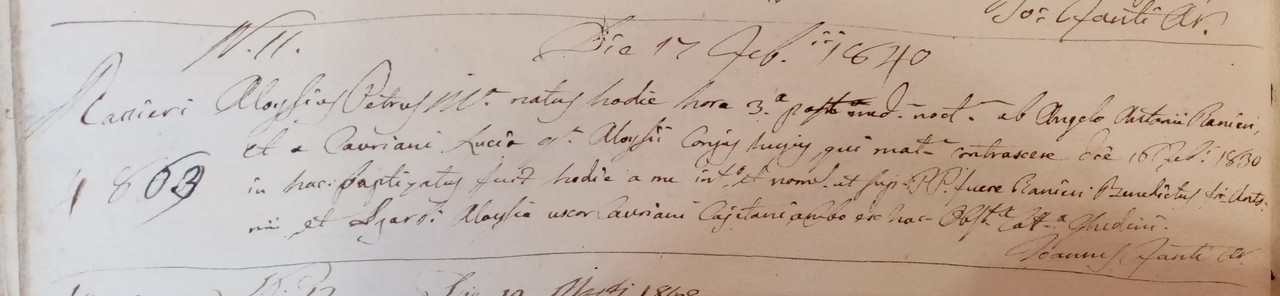 Joi Fanti Ar.
N. 11. Die 17 Feb.ii 1840
Ranieri Aloysius Petrus M.a natus hodie hora 3.a post med. noct. ab Angelo Antonii Ranieri,
et a Cavriani Lucia q.m Aloysii Conjug hujus, qui mat. contraxere die 16 Feb.i 1830
1863 in hac baptizatus fuit hodie a me inf.o et nom. ut sup. PP. fuere Ranieri Benedictus fr. Anto-
nii et Aloysia uxor Cavriani Cajetani ambo ex hac Catt.a Ghedini.
Joannes Fanti Ar.